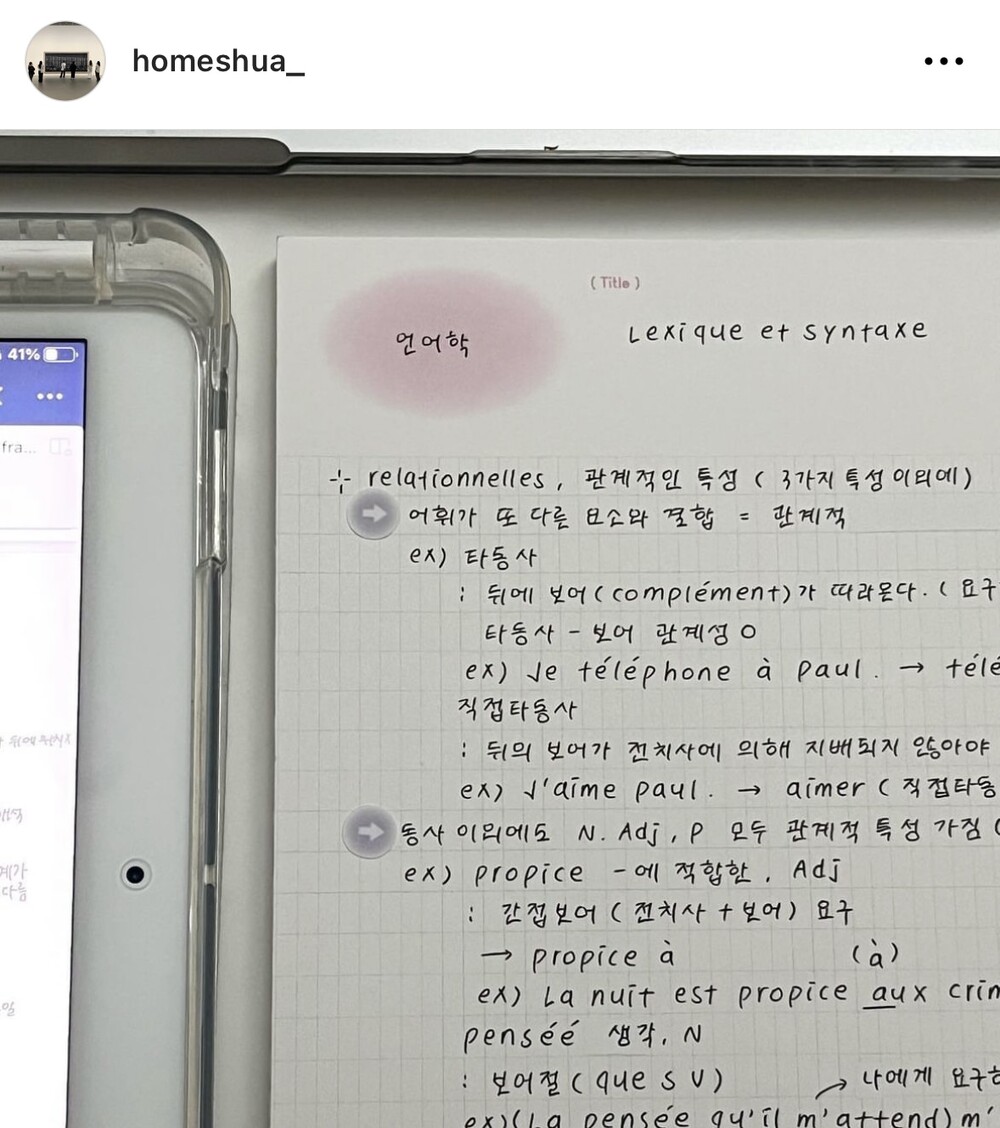 homeshua_
41%
fra...
(Title)
언어학
Lexique et syntaxe
relationnelles, 관계적인 특성 ( 3가지 특성 이외에)
어휘가 또 다른 요소와 결합 = 관계적
ex) 타동사
: 뒤에 보어(complément)가 따라온다. ( 요구
타동사 - 보어 관계성 O
ex) Je téléphone à Paul. → télé
직접타동사
: 뒤의 보어가 전치사에 의해 지배되지 않아야
ex) J'aime paul. → aimer ( 직접타동
동사 이외에도 N. Adj, P 모두 관계적 특성 가짐 (
ex) propice -에 적합한, Adj
: 간접보어 ( 전치사 + 보어) 요구
→ propice à (à)
ex) La nuit est propice aux crim
penséé 생각, N
: 보어절 ( que S V) → 나에게 요구하
ex) (La pensée qu'il m'attend) m'
다름